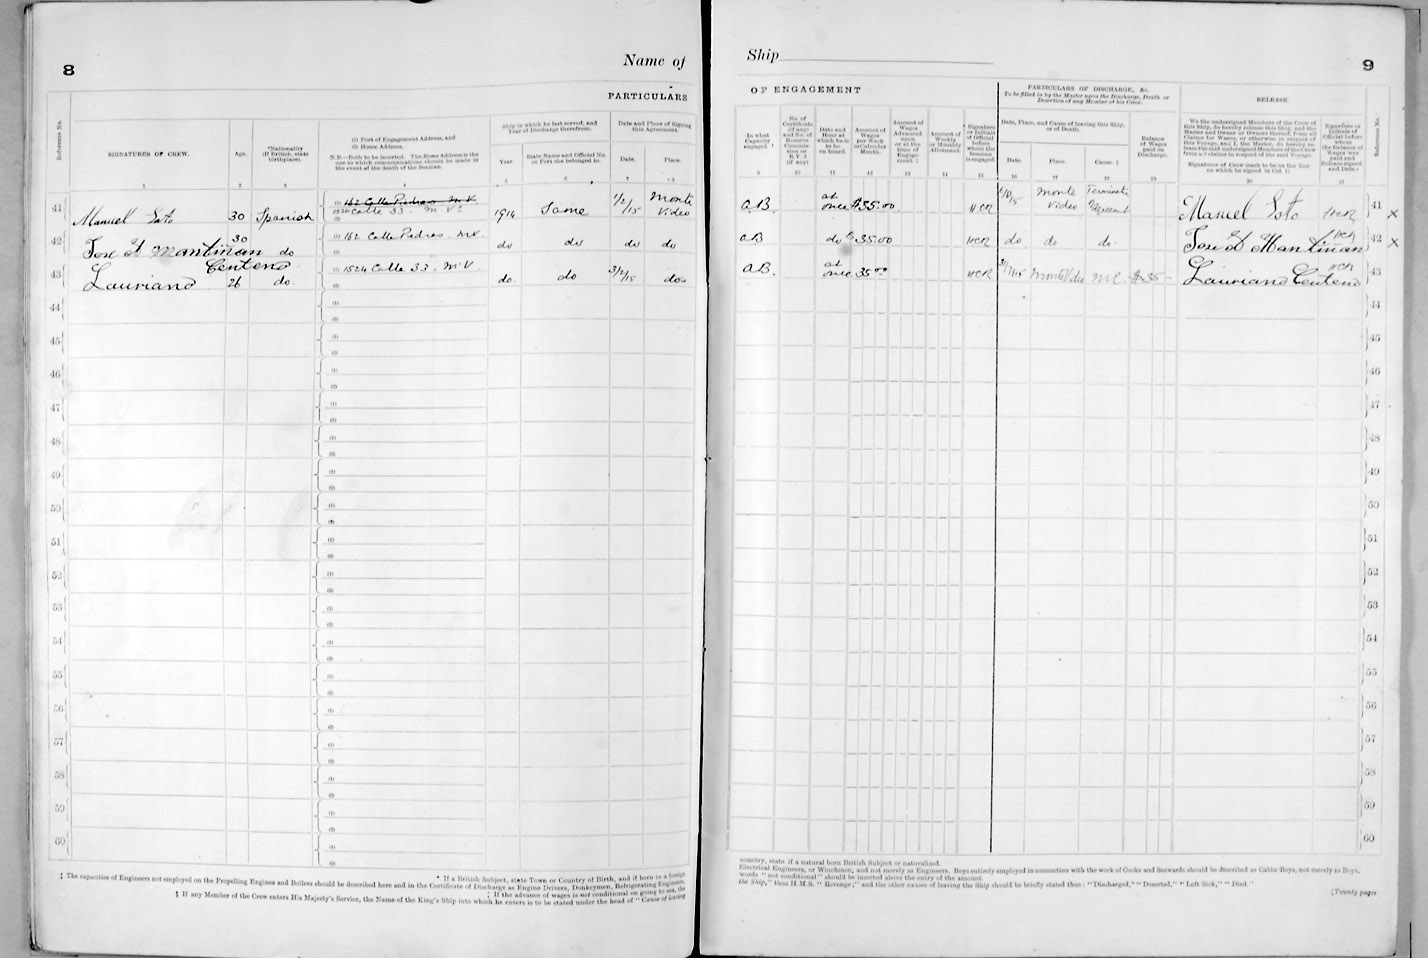 8
Name of
PARTICULARS
Reference No.
SIGNATURES OF CREW.
Age.
*Nationality
(If British, state
birthplace).
(1) Port of Engagement Address, and
(2) Home Address.
N.B.—Both to be inserted. The Home Address is the
one to which communications should be made in
the event of the death of the Seaman.
Ship in which he last served, and
Year of Discharge therefrom.
Year.
State Name and Official No.
or Port she belonged to.
Date and Place of Signing
this Agreement.
Date.
Place.
1 2 3 4 5 6 7 8
41 Manuel Soto 30 Spanish (1) 162 Calle Piedras M.V. 1524 Calle 33. M.V. 1914 Same 1/2/15 Monte Video
42 Jose A Mantiñan 30 do (1) 162 Calle Piedras. M.V. do do do do
43 Lauriano Centeno 26 do (1) 1524 Calle 33. M.V. do do 3/2/15 do
44
45
46
47
48
49
50
51
52
53
54
55
56
57
58
59
60
* If a British Subject, state Town or Country of Birth, and if born in a foreign
‡ The capacities of Engineers not employed on the Propelling Engines and Boilers should be described here and in the Certificate of Discharge as Engine Drivers, Donkeymen, Refrigerating Engineers,
‡ If the advance of wages is not conditional on going to sea, the
§ If any Member of the Crew enters His Majesty's Service, the Name of the King's Ship into which he enters is to be stated under the head of "Cause of leaving
Ship
9
OF ENGAGEMENT
PARTICULARS OF DISCHARGE, &c.
To be filled in by the Master upon the Discharge, Death or
Desertion of any Member of his Crew.
RELEASE.
In what
Capacity
engaged
No. of
Certificate
(if any)
and No. of
Reserve
Commis-
sion or
R.V. 2
(if any)
Date and
Hour at
which he is
to be
on board.
Amount of
Wages
per Week
or Calendar
Month.
Amount of
Wages
Advanced
upon
or at the
time of
Engage-
ment.
Amount of
Weekly
or Monthly
Allotment.
Signature
or Initials
of Official
before
whom the
Seaman is
engaged.
Date, Place, and Cause of leaving this Ship,
or of Death.
Date.
Place.
Cause.
Balance
of Wages
paid on
Discharge.
We the undersigned Members of the Crew of
this Ship, do hereby release this Ship, and the
Master and Owner or Owners thereof, from all
Claims for Wages, or otherwise in respect of
this Voyage, and I, the Master, do hereby re-
lease the said undersigned Members of the Crew
from all claims in respect of the said Voyage.
Signatures of Crew (each to be on the line
on which he signed in Col. 1).
Signature or
Initials of
Official before
whom
the Balance of
Wages was
paid and
Release signed
and Date.
Reference No.
9 10 11 12 13 14 15 16 17 18 19 20 21
A.B. at once $35.00 HCR Monte Video Terminate Agreement Manuel Soto HCR 41 X
AB do $35.00 HCR do. do do. Jose A Mantiñan HCR 42 X
A.B. at once 35 00 HCR MonteVideo M.C. $35- Lauriano Centeno HCR 43
44
45
46
47
48
49
50
51
52
53
54
55
56
57
58
59
60
country, state if a natural born British Subject or naturalized.
Electrical Engineers, or Winchmen, and not merely as Engineers. Boys entirely employed in connection with the work of Cooks and Stewards should be described as Cabin Boys, not merely as Boys.
words "not conditional" should be inserted above the entry of the amount.
the Ship," thus H.M.S. "Revenge;" and the other causes of leaving the Ship should be briefly stated thus: "Discharged," "Deserted," "Left Sick," "Died."
[Twenty pages